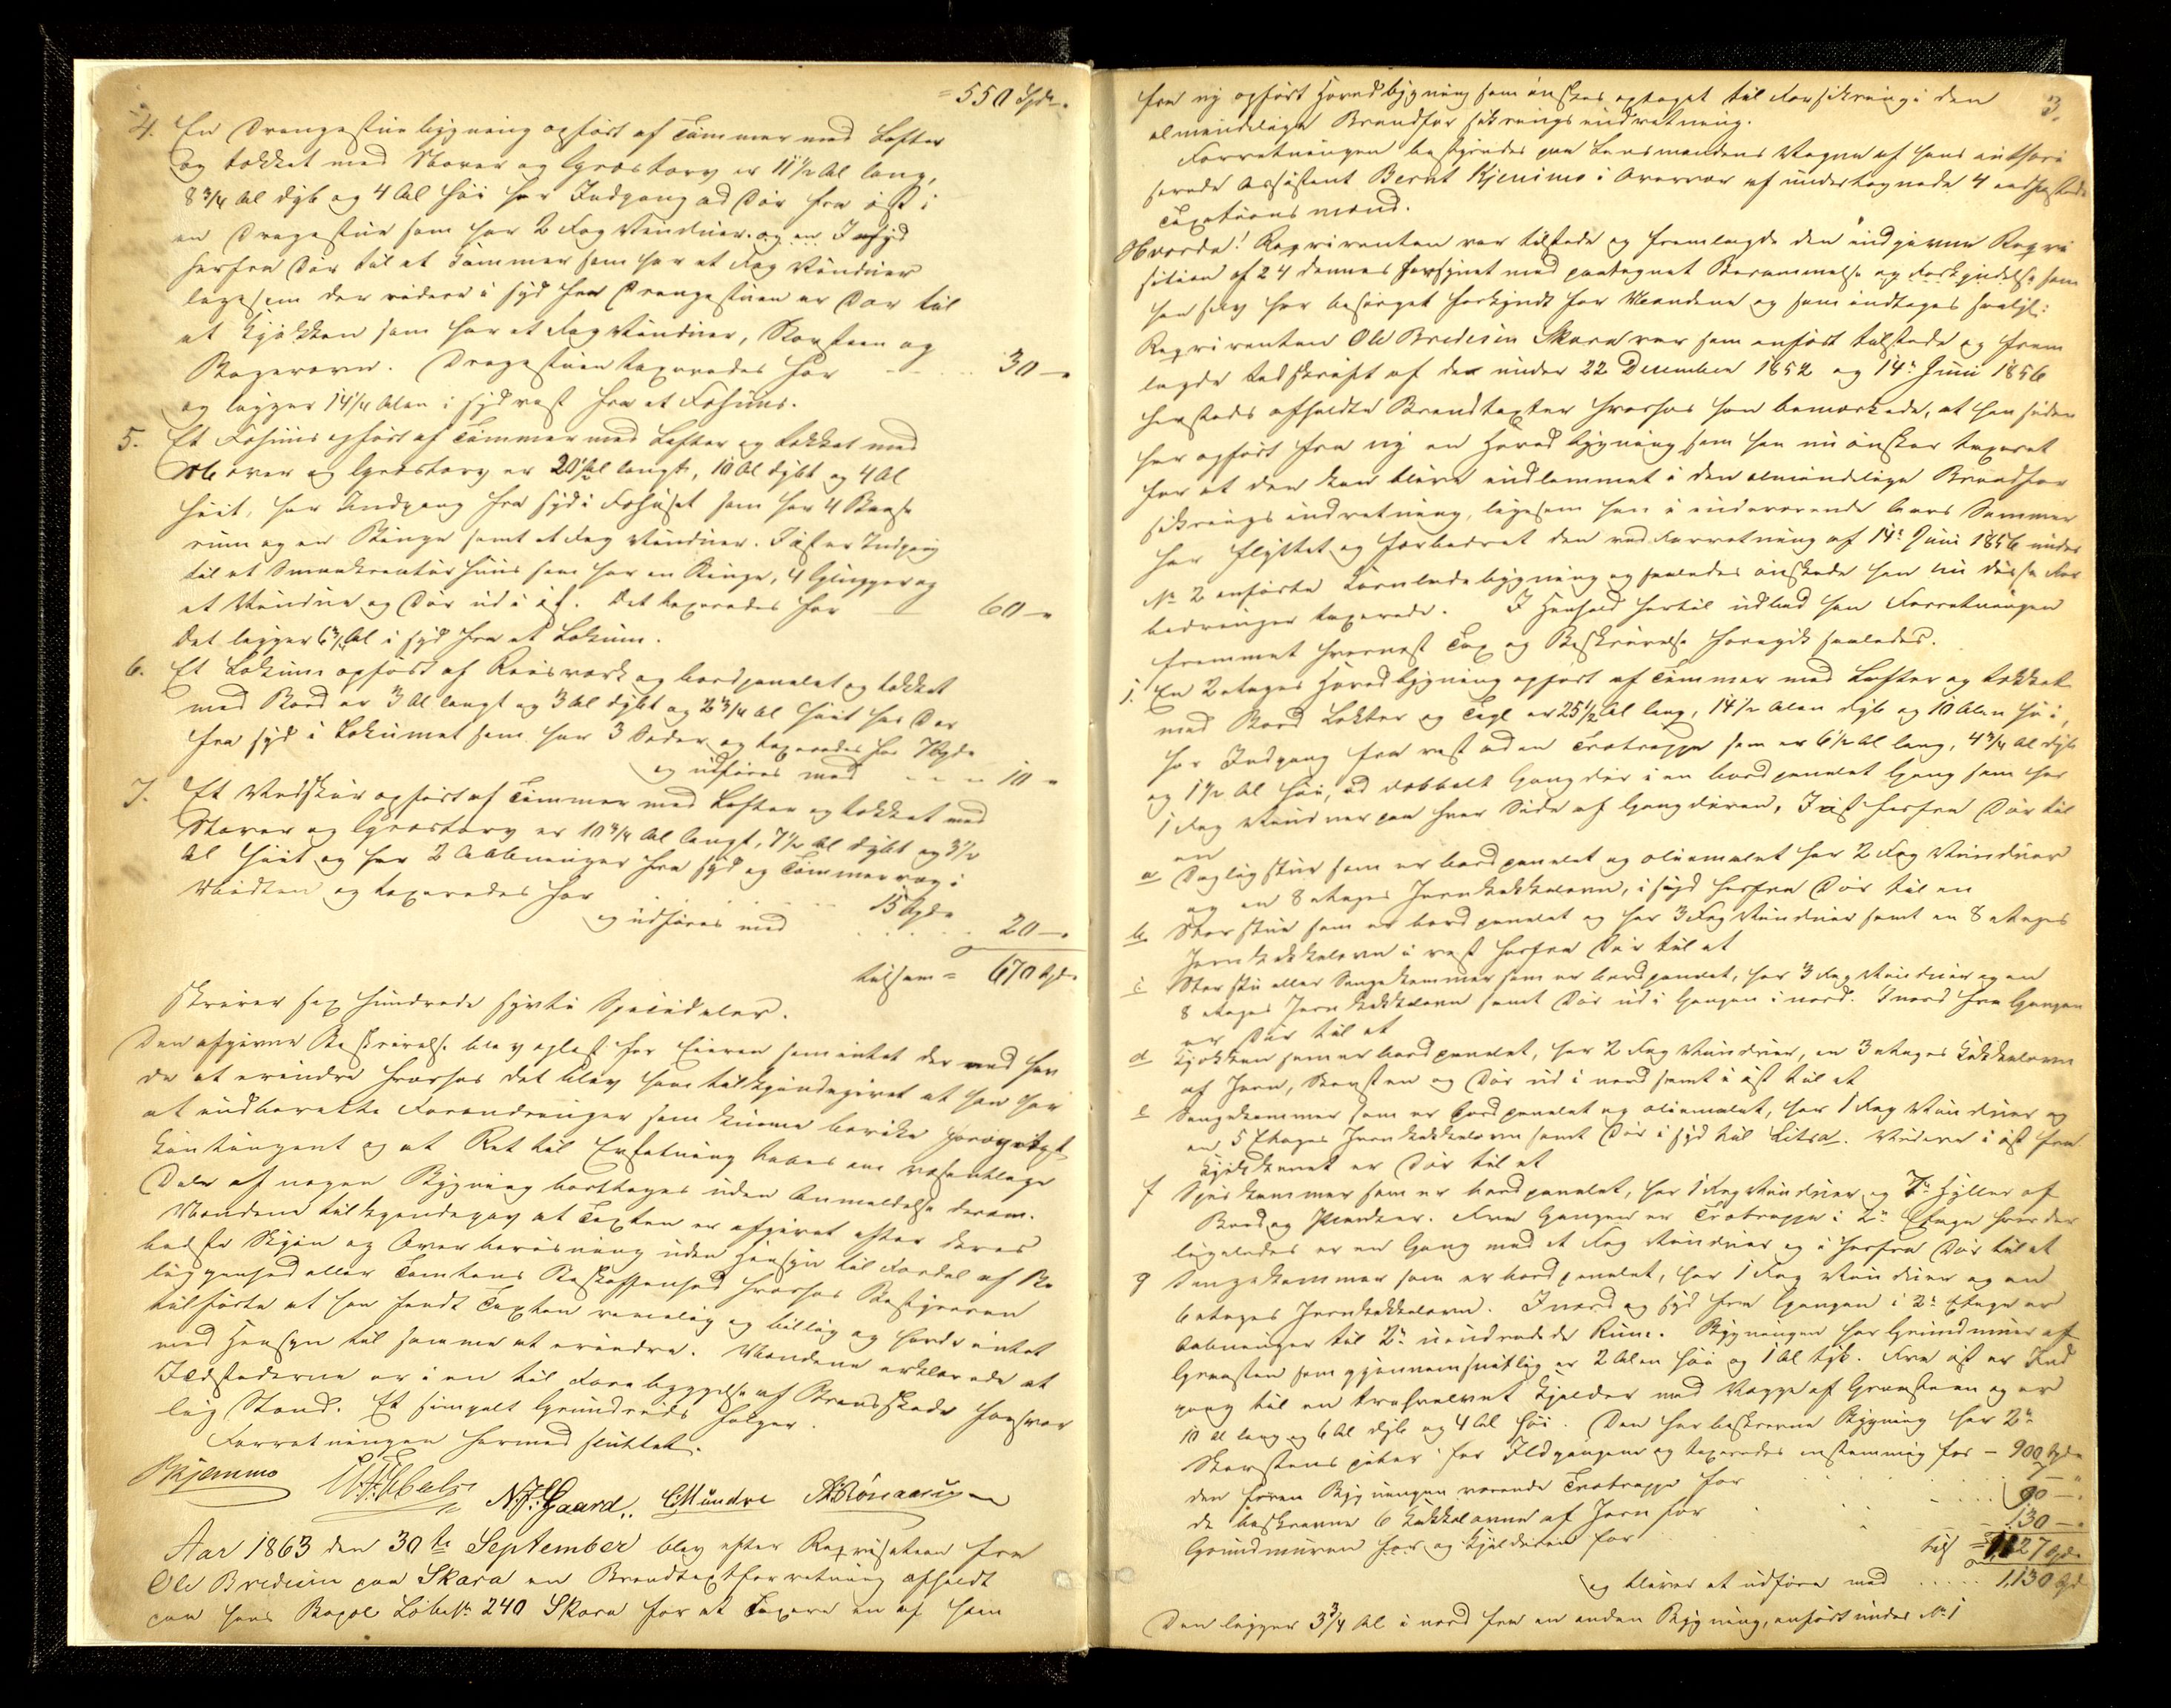 = 550 Spd.
4. En Drengestuebygning opført af Tømmer med Lofter
og tækket med Næver og Græstorv er 11 1/2 Al lang,
8 3/4 Al dyb og 4 Al høi har Indgang ad Dør fra øst i
en Drengestue som har 2 Fag Vinduer og en I syd
herfra Dør til et Kammer som har et Fag Vinduer
ligesom der videre i syd fra Drengestuen er Dør til
et Kjøkken som har et Fag Vinduer, Skorsteen og
Bagerovn. Drengestuen taxeredes for 30 "
og ligger 14 1/4 Alen i sydvest fra et Fæhuus.
5. Et Fæhuus opført af Tømmer med Lofter og tækket med
Næver og Græstorv er 20 1/2 Al langt, 10 Al dybt og 4 Al
høit, har Indgang fra syd i Fæhuset som har 4 Baase
rum og en Binge samt et Fag Vinduer. I øst er Indgang
til et Smaakreaturhuus som har en Binge, 4 Glugger og
et Vindue og Dør ud i øst. Det taxeredes for 60 "
Det ligger 6 3/4 Al i syd fra et Lokum.
6. Et Lokum opført af Reisværk og bordpanelet og tækket
med Bord er 3 Al langt og 3 Al dybt og 2 3/4 Al høit har Dør
fra syd i Lokumet som har 3 Sæder og taxeredes for 7 Spd
og udføres med 10 "
7. Et Vedskur opført af Tømmer med Lofter og tækket med
Næver og Græstorv er 10 3/4 Al langt, 7 1/2 Al dybt og 3 1/2
Al høit og har 2 Aabninger fra syd og Tømmervæg i
Midten og taxeredes for 15 Spd
og udføres med 20 "
tilsam = 670 Spd.
skriver sex hundrede sytti Speciedaler.
Den afgivne Beskrivelse blev oplæst for Eieren som intet der ved hav
de at erindre hvorhos det blev ham tilkjendegivet at han har
at indberette Forandringer som kunne bevirke forøget
Kontingent og at Ret til Erstatning tabes om væsentlige
Dele af nogen Bygning borttages uden Anmeldelse derom.
Mændene tilkjendegav at Taxten er afgivet efter deres
bedste Skjøn og Overbeviisning uden Hensyn til Fordel af Be
liggenhed eller Tomtens Beskaffenhed hvorhos Bestyreren
tilførte at han fandt Taxten rimelig og billig og havde intet
med Hensyn til samme at erindre. Mændene erklærede at
Ildstederne er i en til Forebyggelse af Brandskade forsvar
lig Stand. Et simpelt Grundrids følger.
Forretningen hermed sluttet.
BKjemmo N. T. Gaard.. CMundre
Aar 1863 den 30te September blev efter Reqvisition fra
Ole Bredesen paa Skara en Brandtaxtforretning afholdt
paa hans Bopæl Løbe No 240 Skara for at Taxere en af ham
3.
fra ny opført Hovedbygning som ønskes optaget til Forsikring i den
almindelige Brandforsikringsindretning.
Forretningen bestyredes paa Lensmandens Vegne af hans authori
serede Assistent Bernt Kjemmo i Overvær af undertegnede 4 edfæstede
Taxationsmænd.
Hvorda! Reqvirenten var tilstede og fremlagde den indgivne Reqvi
sition af 24 dennes forsynet med paategnet Berammelse og Forkyndelse som
han selv har besørget forkyndt for Mændene og som indtages saalyd:
Reqvirenten Ole Bredesen Skara var som anført tilstede og frem
lagde Udskrift af de under 22 December 1852 og 14de Juni 1856
hersteds afholdte Brandtaxter hvorhos han bemærkede, at han siden
har opført fra ny en Hovedbygning som han nu ønsker taxeret
for at den kan blive indlemmet i den almindelige Brandfor
sikringsindretning, ligesom han i indeværende Aars Sommer
har flyttet og forbedret den ved Forretning af 14de Juni 1856 under
No 2 anførte Kornladebygning og saaledes ønskede han nu disse For
bedringer taxerede. I Henhold hertil udbad han Forretningen
fremmet hvornæst Tax og Beskrivelse foregik saaledes.
1. En 2 etages Hovedbygning opført af Tømmer med Lofter og tækket
med Bord Lekter og Tegl er 25 1/2 Al lang, 14 1/2 Alen dyb og 10 Alen høi,
har Indgang fra vest ad en Trætrappe som er 6 1/2 Al lang, 4 3/4 Al dyb
og 1 1/2 Al høi, ad dobbelt Gangdør i en bordpanelet Gang som har
1 Fag Vinduer paa hver Side af Gangdøren, I øst herfra Dør til
en
a Dagligstue som er bordpanelet og oliemalet har 2 Fag Vinduer
og en 8 etages Jernkakkelovn, i syd herfra Dør til en
b Storstue som er bordpanelet og har 3 Fag Vinduer samt en 8 etages
Jernkakkelovn i vest herfra Dør til et
c Storstue eller Sengekammer som er bordpanelet, har 3 Fag Vinduer og en
8 etages Jernkakkelovn samt Dør ud i Gangen i nord. I nord fra Gangen
er Dør til et
d Kjøkken som er bordpanelet, har 2 Fag Vinduer, en 3 etages Kakkelovn
af Jern, Skorsten og Dør ud i nord samt i øst til et
e Sengekammer som er bordpanelet og oliemalet, har 1 Fag Vinduer og
en 5 Etages Jernkakkelovn samt Dør i syd til Litra a. Videre i øst fra
Kjøkkenet er Dør til et
f Spiskammer som er bordpanelet, har 1 Fag Vinduer og 7 Hyller af
Bord og Planker. Fra Gangen er Trætrappe i 2den Etage hvor der
ligeledes er en Gang med et Fag Vinduer og i herfra Dør til et
g Sengekammer som er bordpanelet, har 1 Fag Vinduer og en
6 etages Jernkakkelovn. I nord og syd fra Gangen i 2den Etage er
Aabninger til 2de uindredede Rum. Bygningen har Grundmuur af
Graasten som gjennemsnitlig er 2 Alen høi og 1 Al tyk. Fra øst er Ind
gang til en Kjelder med Vægge af Graasteen og er
10 Al lang og 6 Al dyb og 4 Al høi. Den her beskrevne Bygning har 2de
Skorstenspiber for Ildgangene og taxeredes enstemmig for 900 Spd
den foran Bygningen værende Trætrappe for 7 "
de beskrevne 6 Kakkelovne af Jern for 90 "
Grundmuren for og Kjelderen for 130 "
tils = 1127 Spd.
og bliver at udføre med 1,130 Spd
Den ligger 3 3/4 Al i nord fra en anden Bygning, anført under No 1